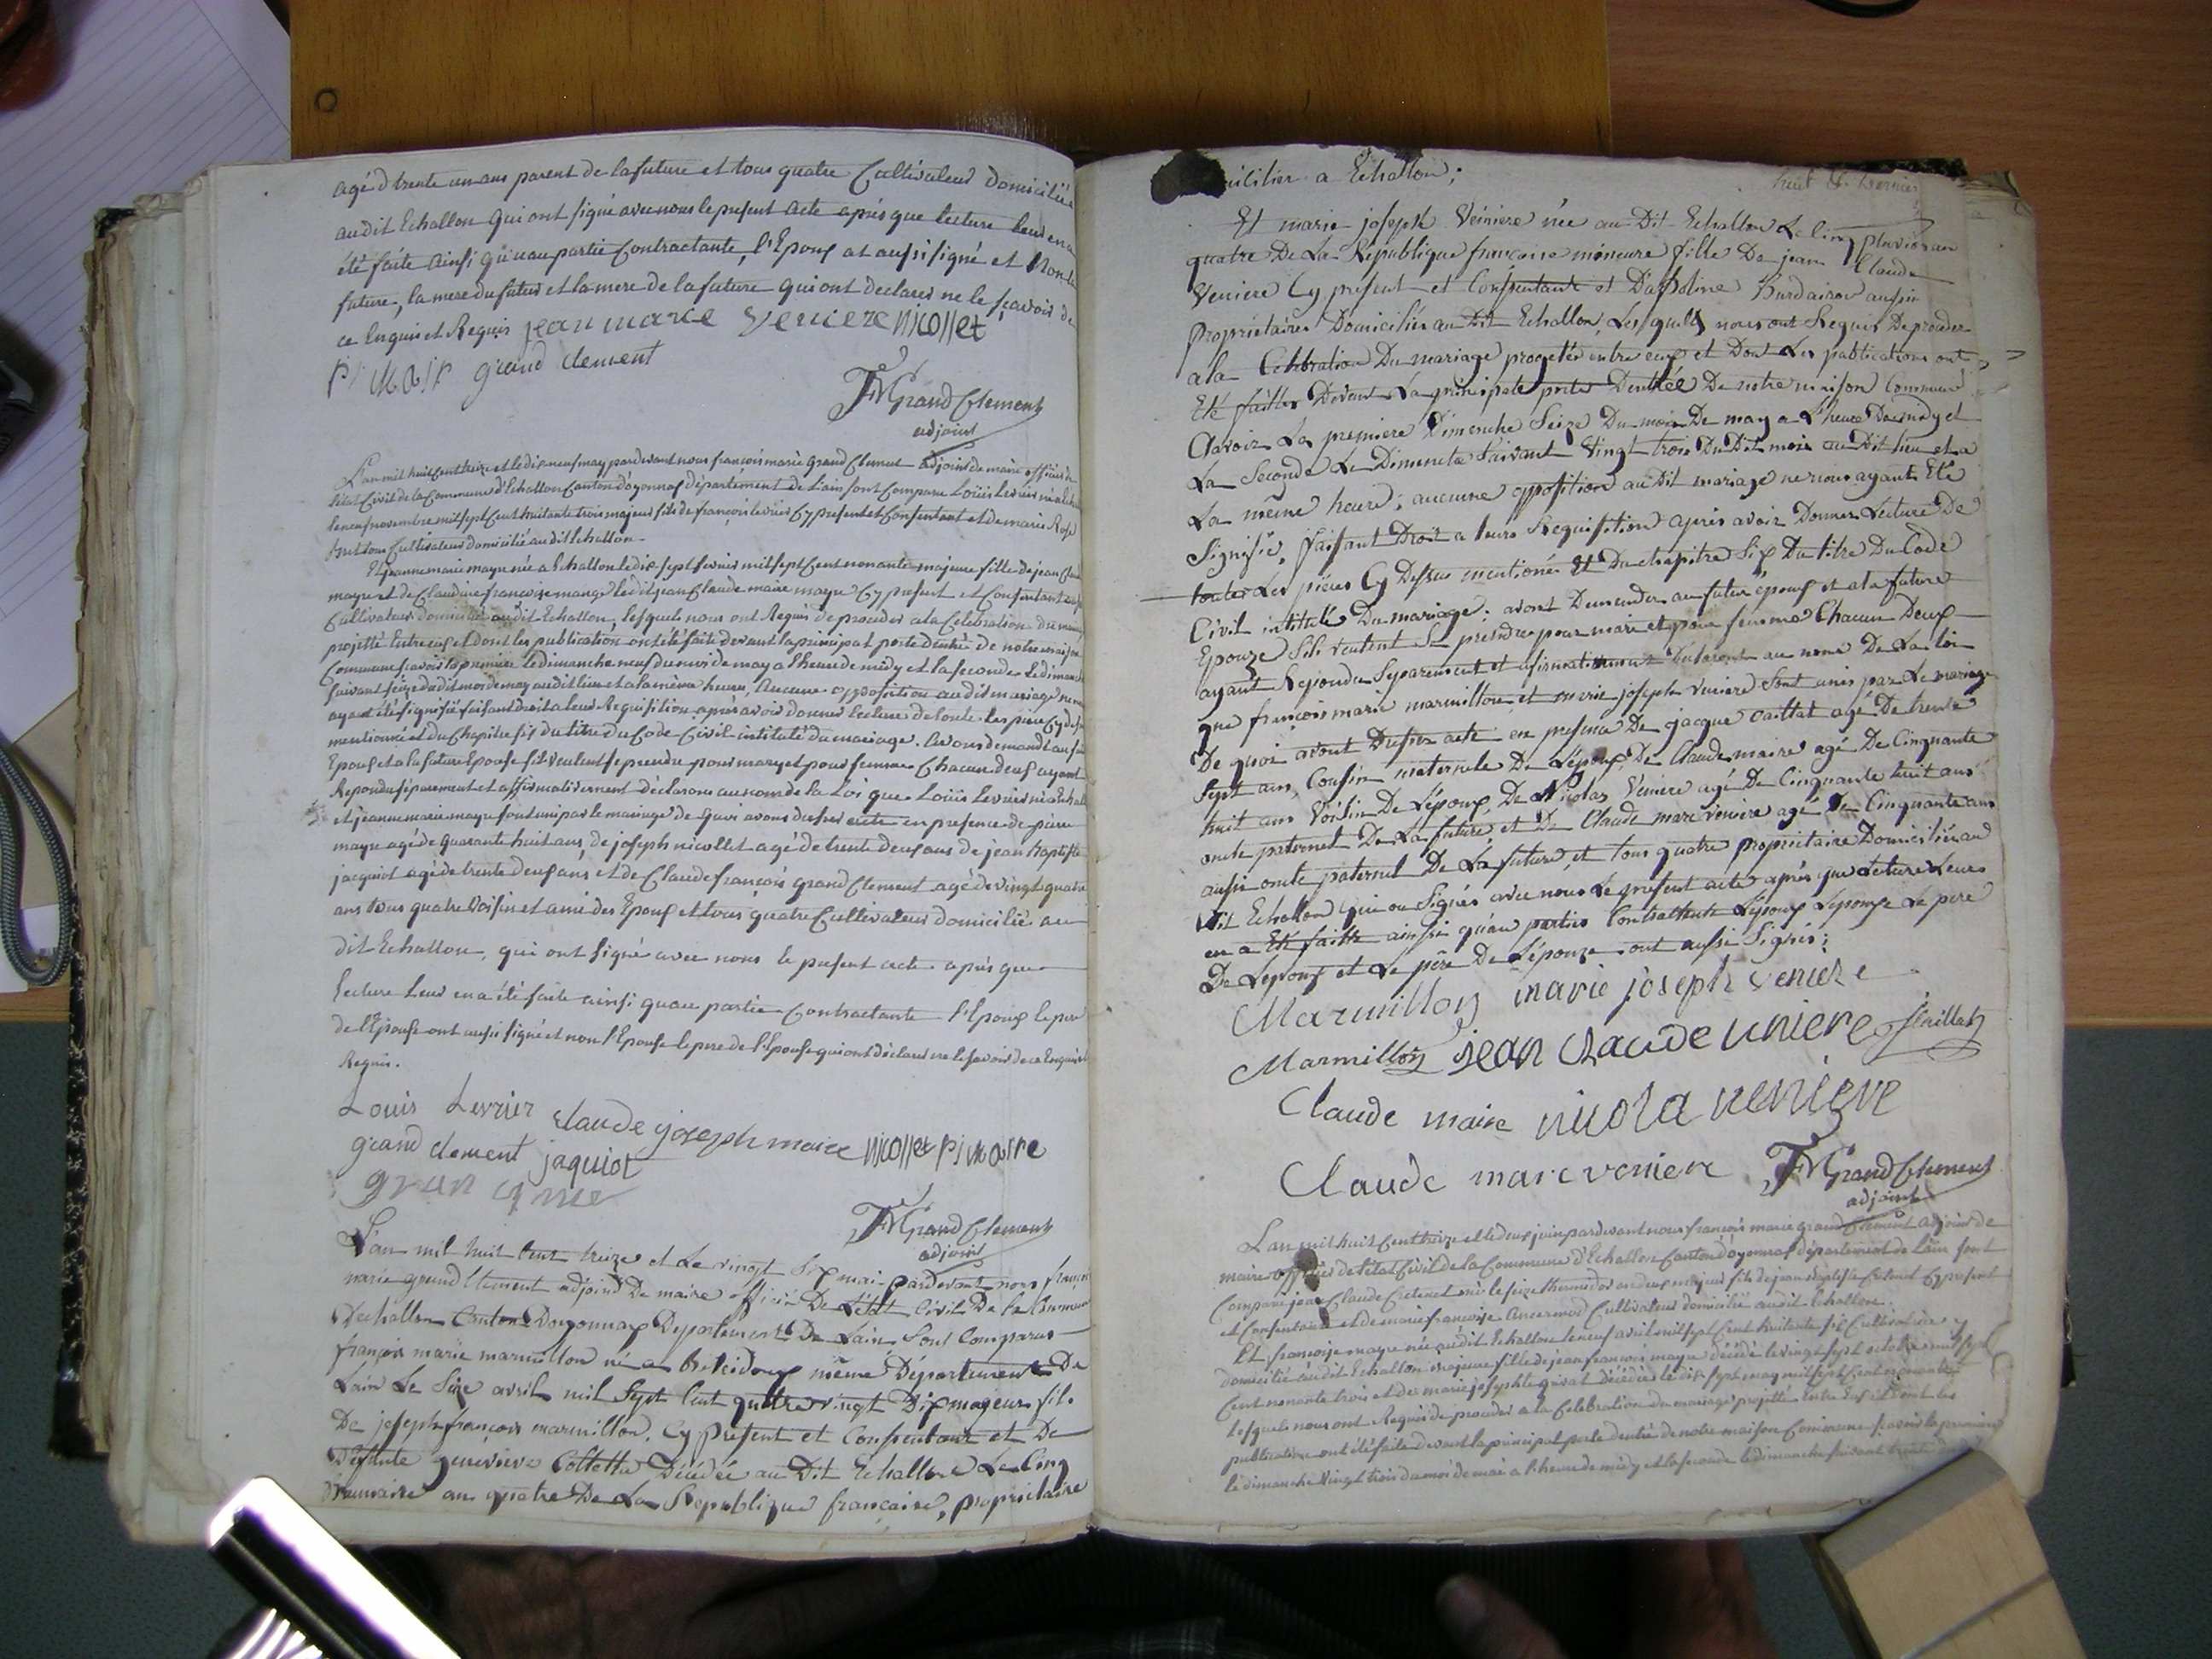 agé d trente un ans parent de la future et tous quatre Cultivateur domiciliés
audit Echallon qui ont signé avec nous le present acte après que lecture leur en a
été faite ainsi qu'au partie Contractante, l'Epoux at aussi signé et Non la
future, la mere du futur et la mere de la future qui ont declarés ne le sçavoir de
ce Enquis et Requis jean marie veniere nicollet
grand clement
FMGrandClement
adjoint
L'an mil huit Cent treize et le dix neuf may pardevant nous françois marie Grand Clement adjoint de maire officier de
létat Civil de la Commune d'Echallon Canton d'oyonnax département de Lain sont Comparu Loüis Levrier né a
le neuf novembre mil sept Cent huitante trois majeur fils de françois levrier Cy present et Consentant et de marie Rose
tous Cultivateur domicilié audit Echallon.
Et jeanne marie mayre née a Echallon le dix sept fevrier mil sept Cent nonante majeure fille de jean Claude
mayre et de Claudine françoise ledit jean Claude maire mayre Cy present et Consentant
Cultivateur domicilié audit Echallon, lesquels nous ont Requis de proceder a la Celebration du mariage
projetté Entre eux et dont les publication ont été faite devant la principal porte d'entré de notre maison
Commune sçavoir la premiere le dimanche neuf du mois de may a lheure de midy et la seconde le dimanche
suivant seize dudit mois de may audit lieu et a la même heure, Aucune opposition audit mariage ne nous
ayant été signifié faisant droit a leur Requisition après avoir donner lecture de toute les piece Cy dessus
mentionné et du Chapitre six du titre du Code Civil intitulé du mariage. Avons demandé au futur
Epoux et a la future Epouse s'il veulent se prendre pour mary et pour femme Chacun deux ayant
Repondu séparement et affirmativement déclarons au nom de la Loi que Loüis Levrier
et jeanne marie mayre sont uni par le mariage de quoi avons dressé acte en presence de pierre
mayre agé de quarante huit ans, de joseph nicollet agé de trente deux ans de jean baptiste
jacquiot agé de trente deux ans et de Claude françois grand Clement agé de vingt quatre
ans tous quatre voisin et ami des Epoux et tous quatre Cultivateur domicilié au
dit Echallon, qui ont signé avec nous le present acte après que
lecture leur en a été faite ainsi qu'au partie Contractante l'Epoux le pere
de l'Epouse ont aussi signé et non l'Epouse le pere de l'Epouse qui ont déclarés ne le savoir de ce Enquis et
Requis.
Louis Levrier claude joseph maire nicollet
grand clement jaquiot
FMGrandClement
adjoint
L'an mil huit Cent treize et Le vingt six mai pardevant nous françois
marie grand Clement adjoint De maire officier De L'état Civil De la Commune
Dechallon Canton Doyonnax Departement De Lain sont Comparus
françois marie marmillon né a même Département De
Lain Le Sixe avril mil Sept Cent quattre vingt Dix majeur fils
De joseph françois marmillon. Cy Present et Consentant et De
Deffunte genevieve Collette Décédée au Dit Echallon Le Cinq
an quatre De La Republique francaise, proprietaire
a Echallon;
Et marie joseph Veniere née au Dit Echallon Le Cinq pluviose an
quatre De La Republique francaise mineure fille De jean Claude
Veniere Cy present et Consentant et Dapoline aussi
Propriétaires Domiciliés au Dit Echallon, Lesquels nous ont Requis De proceder
a la Celebration Du mariage progetés entre eux et Dont Les publications ont
Eté faittes Devant La principale porte Dentrée De notre maison Commune
Savoir La premiere Dimenche Seize Du mois De may a L'heure Demidy et
La Seconde Le Dimenche Suivant Vingt trois Du Dit mois au Dit lieu et a
La même heure; aucunne opposition au Dit mariage ne nous ayant Eté
Signifié, faisant Droit a leurs Requisition après avoir Donner Lecture De
toutes Les pièces Cy Dessus mentionés Et Du chapitre Six Du titre Du Code
Civil intitulé Du mariage. avont Demander au futur époux et a la future
Epouze Sils veulent Se prendre pour mari et pour femme Chacun Deux
ayant Repondu Separement et afirmativement Declaront au nom De La Loi
que francois marie marmillon et marie joseph veniere Sont unis par Le mariage
De quoi avont Dresser acte en presence De jacque caillat agé De trente
Sept ans, Cousin maternele De L'époux De Claude maire agé De Cinquante
huit ans Voisin De L'époux, De Nicolas Veniere agé De Cinquante huit ans
oncle paternel De La future, et De Claude marc veniere agé De Cinquante ans
aussi oncle paternel De La future, et tous quatre proprietaire Domiciliés au
Dit Echallon qui on Signés avec nous Le present acte après que Lecture Leurs
en a Eté faitte ainssi qu'au parties Contractente L'époux L'epouze Le pere
De L'epoux et Le père De L'épouze ont aussi Signés;
Marmillon marie joseph veniere
Marmillon jean claude veniere Caillat
Claude maire nicola veniere
Claude marc veniere FMGrandClement
adjoint
L'an mil huit Cent treize et le deux juin pardevant nous françois marie grand Clement adjoint de
maire officier de létat Civil de la Commune d'Echallon Canton d'oyonnax département de Lain sont
Comparu jean Claude né le seize thermidor an deux majeur fils de jean baptiste Cy present
et Consentant et de marie françoise Cultivateur domicilié audit Echallon.
Et françoise mayre née audit Echallon le neuf avril mil sept Cent huitante six Cultivatrice
domicilié audit Echallon majeure fille de jean françois mayre décédé le vingt sept octobre mil sept
Cent nonante trois et de marie josephte décédée le dix sept may mil sept Cent nonante
lesquels nous ont Requis de proceder a la Celebration du mariage projetté Entre Eux et dont les
publication ont été faite devant la principal porte dentré de notre maison Commune sçavoir la premiere
le dimanche vingt trois du moi de mai a l'heure de midy et la seconde le dimanche suivant trente